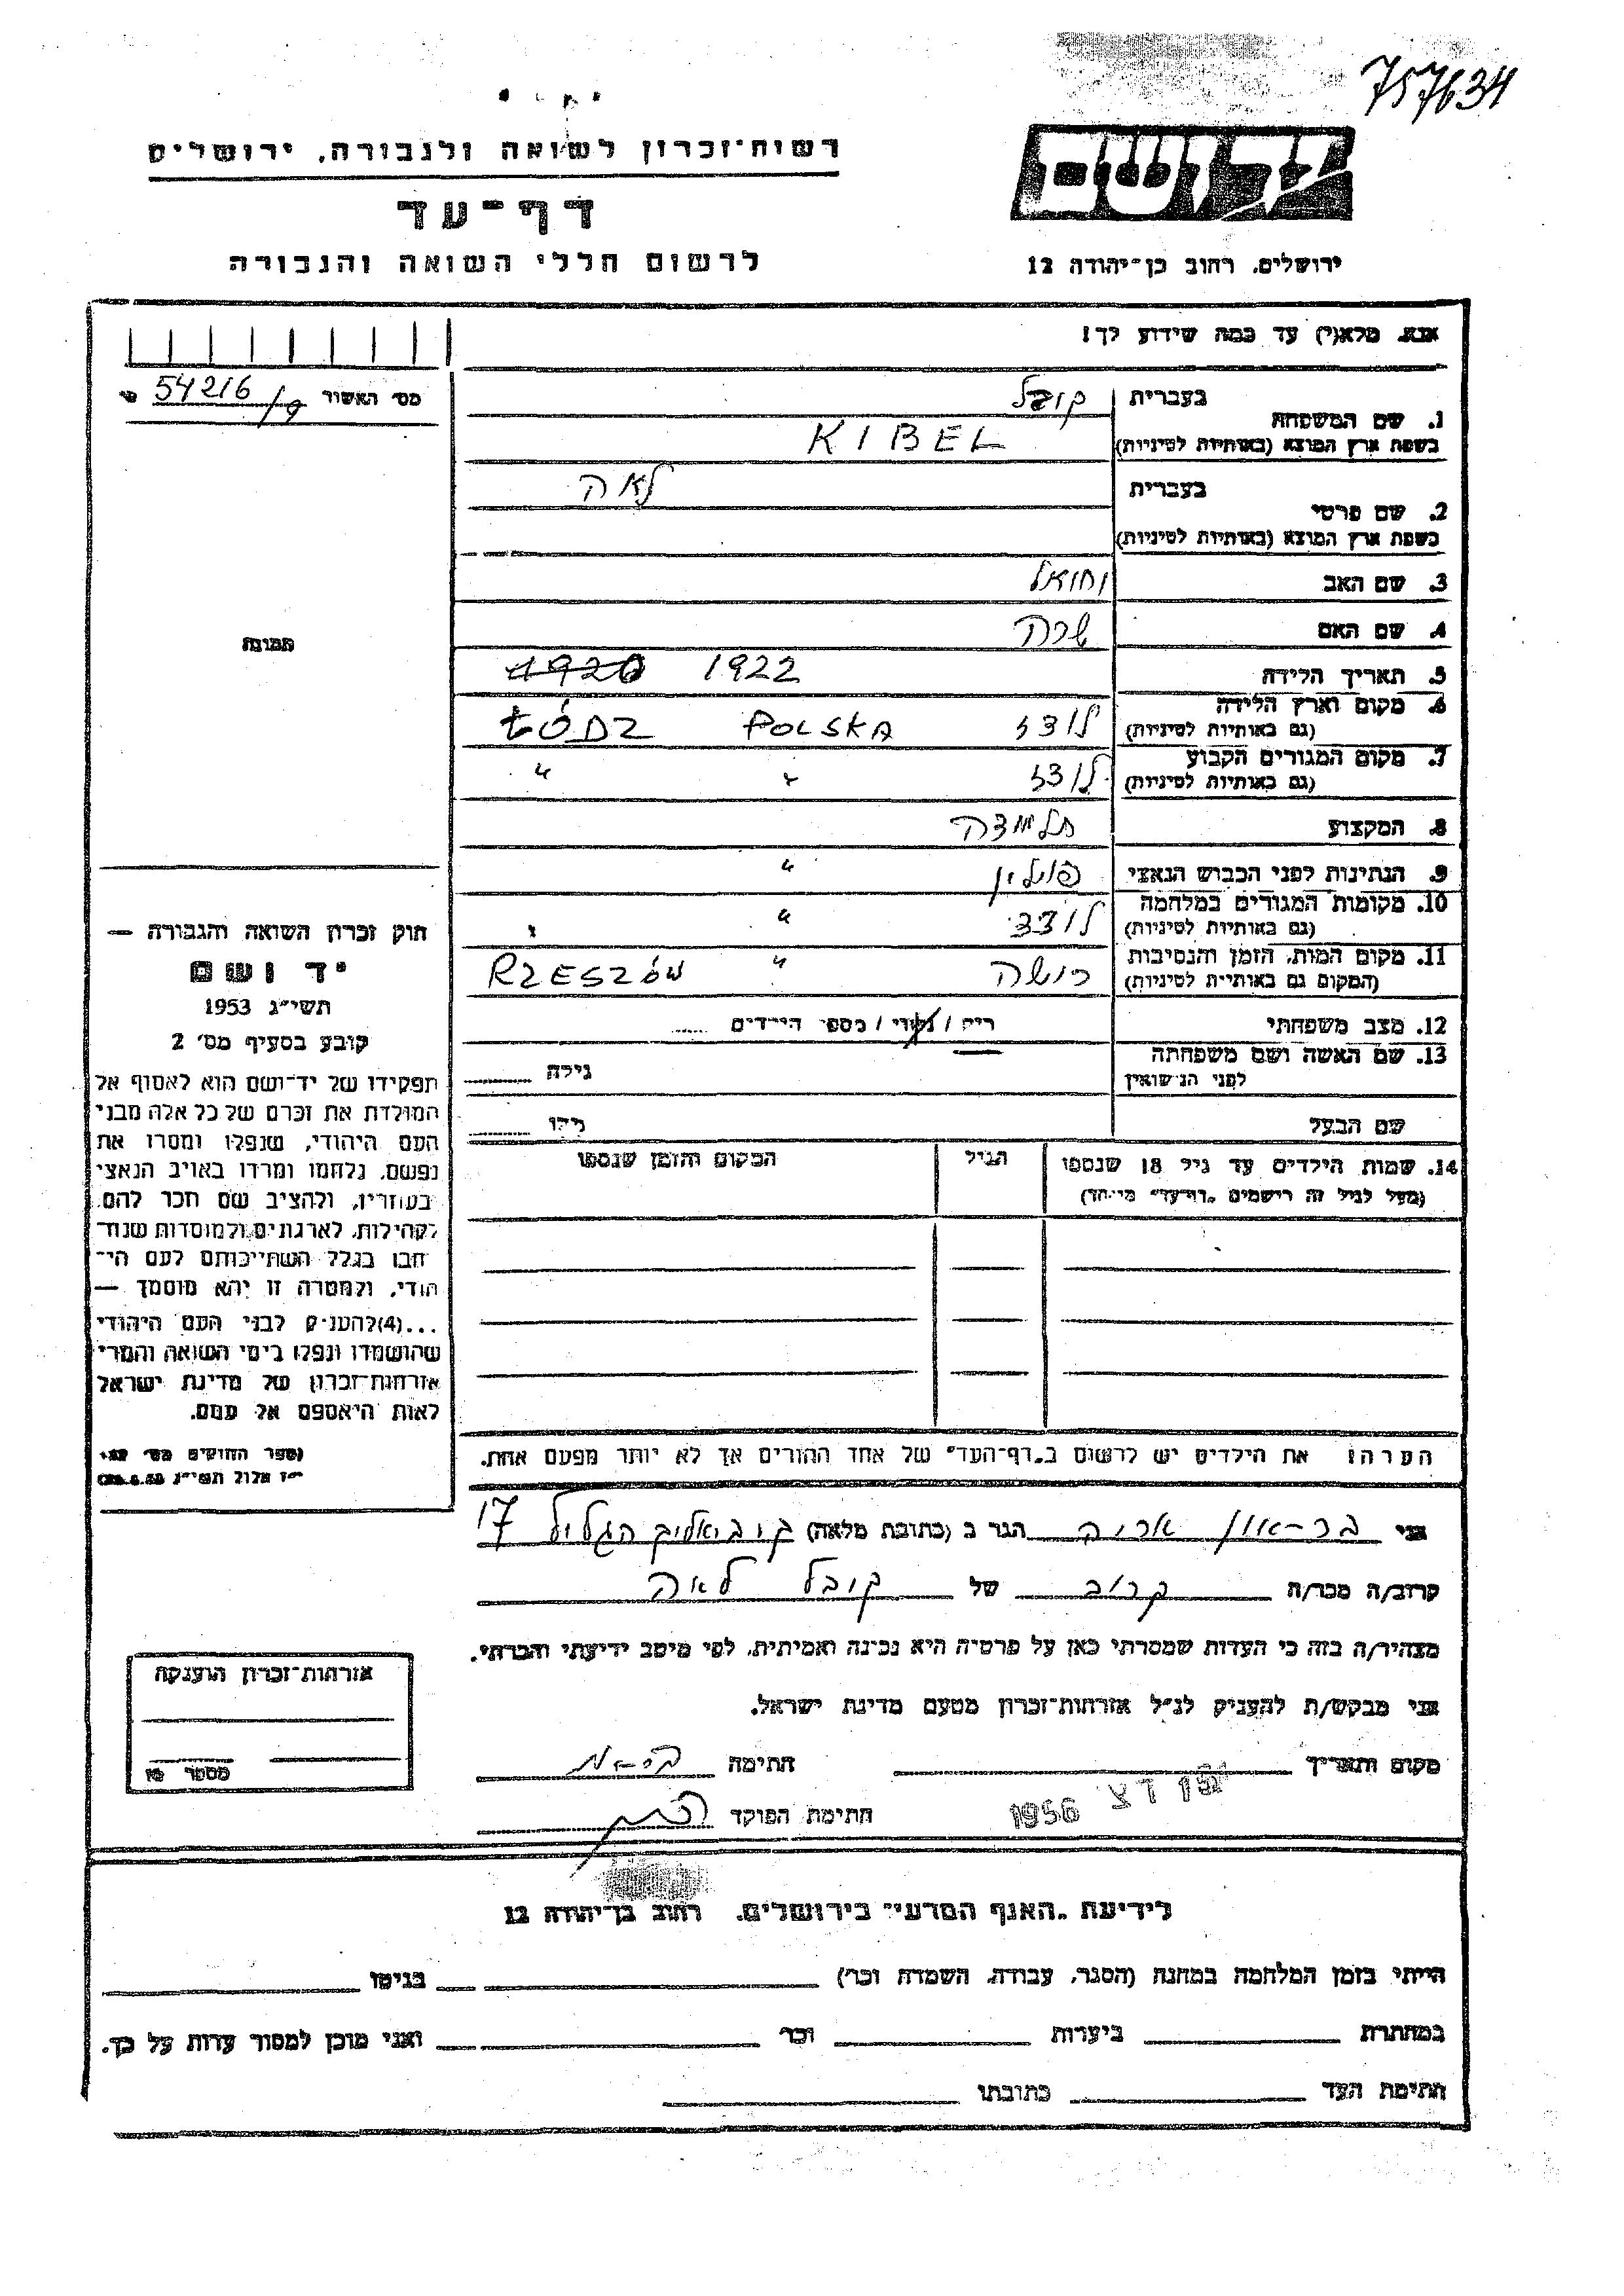 757634
רשות-זכרון לשואה ולגבורה, ירושלים
דף-עד
לרשום חללי השואה והגבורה
יד ושם
ירושלים, רחוב בן-יהודה 12
אנא, מלא(י) עד כמה שידוע לך!
מס׳ האשור 54216/9
1. שם המשפחה בעברית קיבל
בשפת ארץ המוצא (באותיות לטיניות) KIBEL
2. שם פרטי בעברית לאה
בשפת ארץ המוצא (באותיות לטיניות)
3. שם האב
4. שם האם שרה
5. תאריך הלידה 1922 1920
6. מקום וארץ הלידה (גם באותיות לטיניות) לודז POLSKA ŁÓDZ
7. מקום המגורים הקבוע (גם באותיות לטיניות) לודז " "
8. המקצוע תלמידה
9. הנתינות לפני הכבוש הנאצי פולין "
10. מקומות המגורים במלחמה (גם באותיות לטיניות) לודז " "
11. מקום המות, הזמן והנסיבות (המקום גם באותיות לטיניות) " RZESZÓW
12. מצב משפחתי רווק / נשוי / מספר הילדים
13. שם האשה ושם משפחתה לפני הנישואין גילה
שם הבעל גילו
14. שמות הילדים עד גיל 18 שנספו הגיל המקום והזמן שנספו
(מעל לגיל זה רישמים „דף-עד" מיוחד)
הערה: את הילדים יש לרשום ב„דף-העד" של אחד ההורים אך לא יותר מפעם אחת.
תמונה
חוק זכרון השואה והגבורה —
יד ושם
תשי״ג 1953
קובע בסעיף מס׳ 2
תפקידו של יד-ושם הוא לאסוף אל
המולדת את זכרם של כל אלה מבני
העם היהודי, שנפלו ומסרו את
נפשם, נלחמו ומרדו באויב הנאצי
בעוזריו, ולהציב שם וזכר להם,
לקהילות, לארגונים ולמוסדות שנח־
רבו בגלל השתייכותם לעם הי־
הודי, ולמטרה זו יהא מוסמך —
...(4)להעניק לבני העם היהודי
שהושמדו ונפלו בימי השואה והמרי
אזרחות-זכרון של מדינת ישראל
לאות היאספם אל עמם.
(ספר החוקים מס׳ 132
י״ז אלול תשי״ג 28.8.53)
אני בר-און אריה הגר ב (כתובת מלאה) ק. ביאליק הגליל 17
קרוב/ה מכר/ה קרוב של קיבל לאה
מצהיר/ה בזה כי העדות שמסרתי כאן על פרטיה היא נכונה ואמיתית, לפי מיטב ידיעתי והכרתי.
אני מבקש/ת להעניק לנ״ל אזרחות-זכרון מטעם מדינת ישראל.
מקום ותאריך חתימה
1956
חתימת הפוקד
אזרחות-זכרון הוענקה
מספר מז
לידיעת „האגף המדעי" בירושלים, רחוב בן-יהודה 12
הייתי בזמן המלחמה במחנה (הסגר, עבודה, השמדה וכו׳) בגיטו
במחתרת ביערות וכו׳ ואני מוכן למסור עדות על כך.
חתימת העד כתובתו